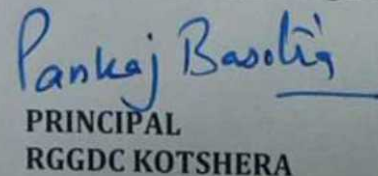 Pankaj Basotia
PRINCIPAL
RGGDC KOTSHERA